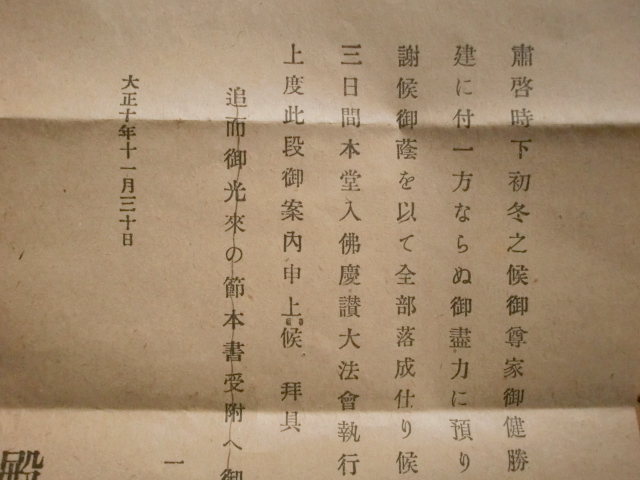 肅啓時下初冬之候御尊家御健勝
建に付一方ならぬ御盡力に預り
謝候御蔭を以て全部落成仕り候
三日間本堂入佛慶讃大法會執行
上度此段御案內申上候 拜具
追而御光來の節本書受附へ御
大正十年十一月三十日
一
殿